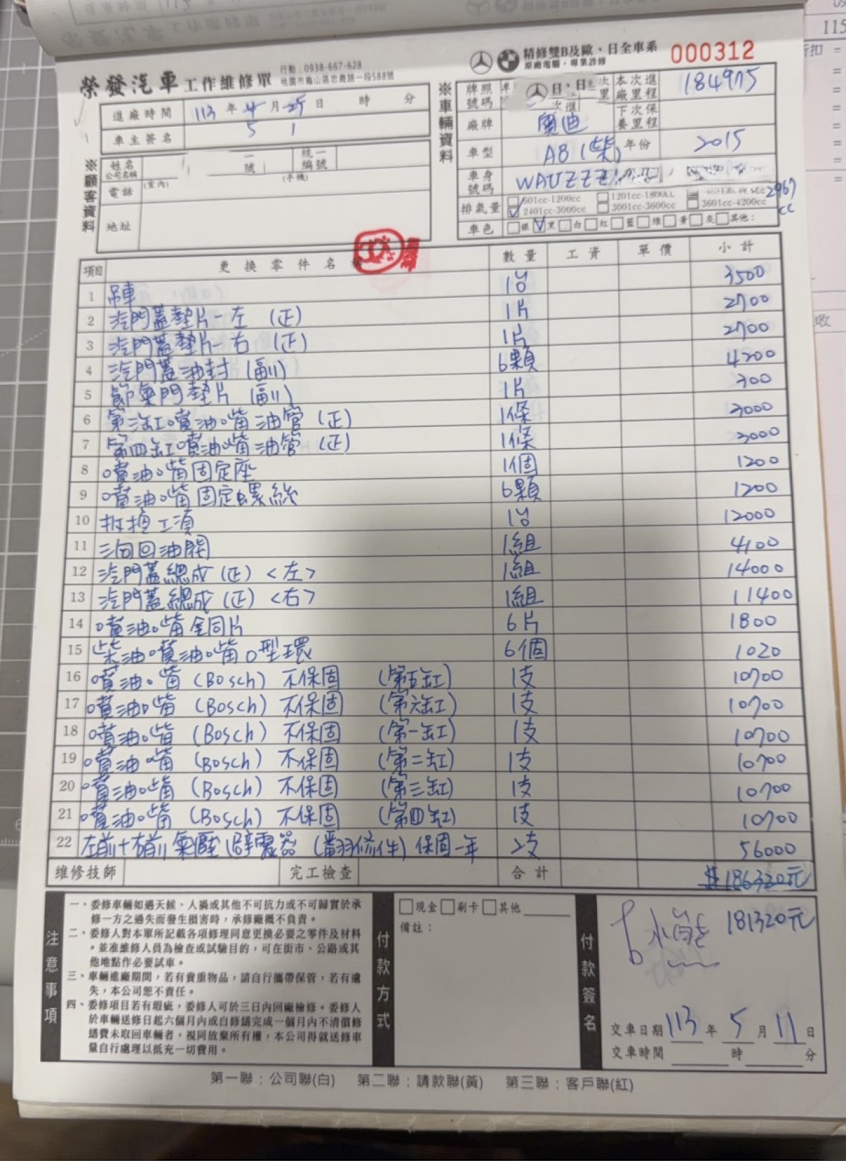 榮發汽車 工作維修單
行動：0938-667-628
桃園市龜山區忠義路一段588號
精修雙B及歐、日全車系
原廠電腦、專業診修
000312
進廠時間 113 年 4 月 29 日 時 分
車主簽名 5 1
※顧客資料
姓名 公司名稱
統一編號
電話 (室內) (手機)
地址
※車輛資料
牌照號碼
本次進廠里程 184975
廠牌 奧迪
下次保養里程
車型 A8 (柴) 年份 2015
車身號碼 WAUZZZ
排氣量 601cc-1200cc 1201cc-1800cc
2401cc-3000cc 3001cc-3600cc 3601cc-4200cc 2967cc
車色 銀 黑 白 紅 藍 綠 黃 灰 其他：
項目 更換零件名 數量 工資 單價 小計
1 吊車 1台 3500
2 汽門蓋墊片-左 (正) 1片 2700
3 汽門蓋墊片-右 (正) 1片 2700
4 汽門蓋油封 (副) 6顆 4200
5 節氣門墊片 (副) 1片 300
6 噴油嘴油管 (正) 1條 3000
7 第四缸噴油嘴油管 (正) 1條 3000
8 噴油嘴固定座 1個 1200
9 噴油嘴固定螺絲 6顆 1200
10 拆換工項 1台 12000
11 三回回油閥 1組 4100
12 汽門蓋總成 (正) <左> 1組 14000
13 汽門蓋總成 (正) <右> 1組 11400
14 噴油嘴銅片 6片 1800
15 柴油噴油嘴O型環 6個 1020
16 噴油嘴 (Bosch) 不保固 (第五缸) 1支 10700
17 噴油嘴 (Bosch) 不保固 (第六缸) 1支 10700
18 噴油嘴 (Bosch) 不保固 (第一缸) 1支 10700
19 噴油嘴 (Bosch) 不保固 (第二缸) 1支 10700
20 噴油嘴 (Bosch) 不保固 (第三缸) 1支 10700
21 噴油嘴 (Bosch) 不保固 (第四缸) 1支 10700
22 左前+右前氣壓避震器 (翻修件) 保固一年 2支 56000
維修技師 完工檢查 合計 $186320元
注意事項
一、委修車輛如遇天候、人禍或其他不可抗力或不可歸實於承
修一方之過失而發生損害時，承修廠概不負責。
二、委修人對本單所記載各項修理同意更換必要之零件及材料
。並准維修人員為檢查或試驗目的，可在街市、公路或其
他地點作必要試車。
三、車輛進廠期間，若有貴重物品，請自行攜帶保管，若有遺
失，本公司恕不責任。
四、委修項目若有瑕疵，委修人可於三日內回廠檢修。委修人
於車輛送修日起六個月內或自修繕完成一個月內不清償修
繕費未取回車輛者，視同放棄所有權，本公司得就送修車
量自行處理以抵充一切費用。
付款方式
現金 刷卡 其他
備註：
付款簽名
181320元
交車日期 113 年 5 月 11 日
交車時間 時 分
第一聯：公司聯(白) 第二聯：請款聯(黃) 第三聯：客戶聯(紅)